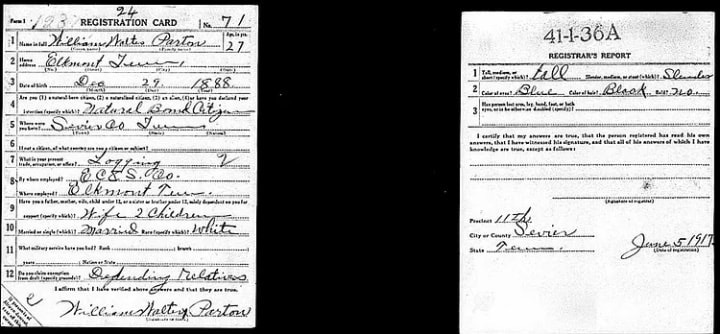 24
Form 1 REGISTRATION CARD No. 71
1 Name in full William Walter Parton Age, in yrs. 27
2 Home address Elkmont Tenn
3 Date of birth Dec 29 1888
4 Are you (1) a natural-born citizen, (2) a naturalized citizen, (3) an alien, (4) or have you declared your intention (specify which)? Natural Born Citizen
5 Where were you born? Sevier Co Tenn
6 If not a citizen, of what country are you a citizen or subject?
7 What is your present trade, occupation, or office? Logging 2
8 By whom employed? E C & S. Co.
Where employed? Elkmont Tenn.
9 Have you a father, mother, wife, child under 12, or a sister or brother under 12, solely dependent on you for support (specify which)? Wife 2 Children
10 Married or single (which)? Married Race (specify which)? White
11 What military service have you had? Rank Branch
years Nation or State
12 Do you claim exemption from draft (specify grounds)? Depending Relatives
I affirm that I have verified above answers and that they are true.
William Walter Parton
41-1-36A
REGISTRAR'S REPORT
1 Tall, medium, or short (specify which)? tall Slender, medium, or stout (which)? Slender
2 Color of eyes? Blue Color of hair? Black Bald? no.
3 Has person lost arm, leg, hand, foot, or both eyes, or is he otherwise disabled (specify)?
I certify that my answers are true, that the person registered has read his own answers, that I have witnessed his signature, and that all of his answers of which I have knowledge are true, except as follows:
(Signature of registrar)
Precinct 11th
City or County Sevier
State Tenn.
June 5 1917
(Date of registration)